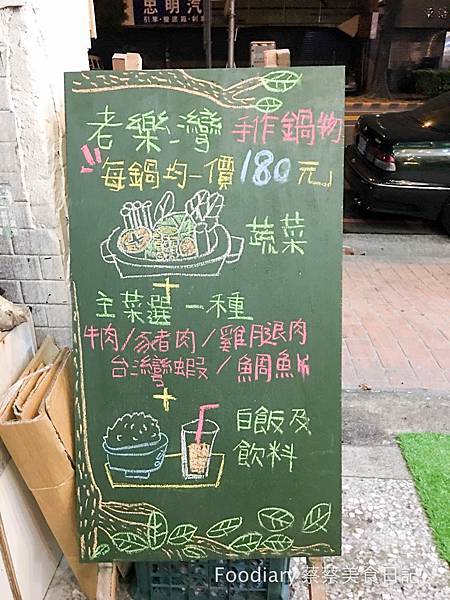 思明汽
老樂灣 手作鍋物
每鍋均一價180元」
蔬菜
+
主菜選一種
牛肉/豬肉/雞腿肉
台灣蝦/鯛魚片
+
白飯及
飲料
Foodiary 蔡蔡美食日記